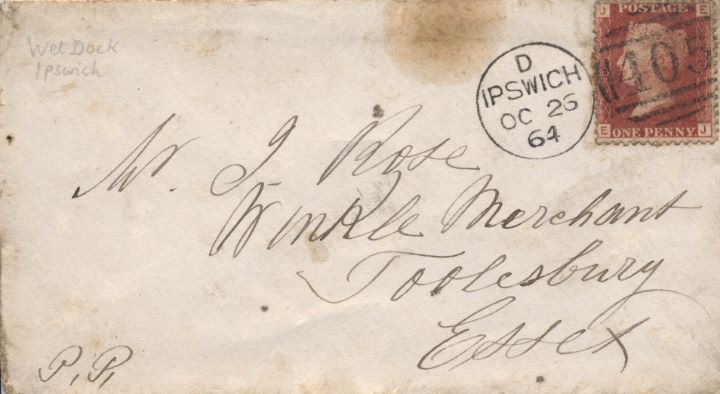 Wet Dock
Ipswich
D
IPSWICH
OC 26
64
J POSTAGE E
405
E ONE PENNY J
Mr. J Rose
Winkle Merchant
Toolesbury
Essex
P, P,